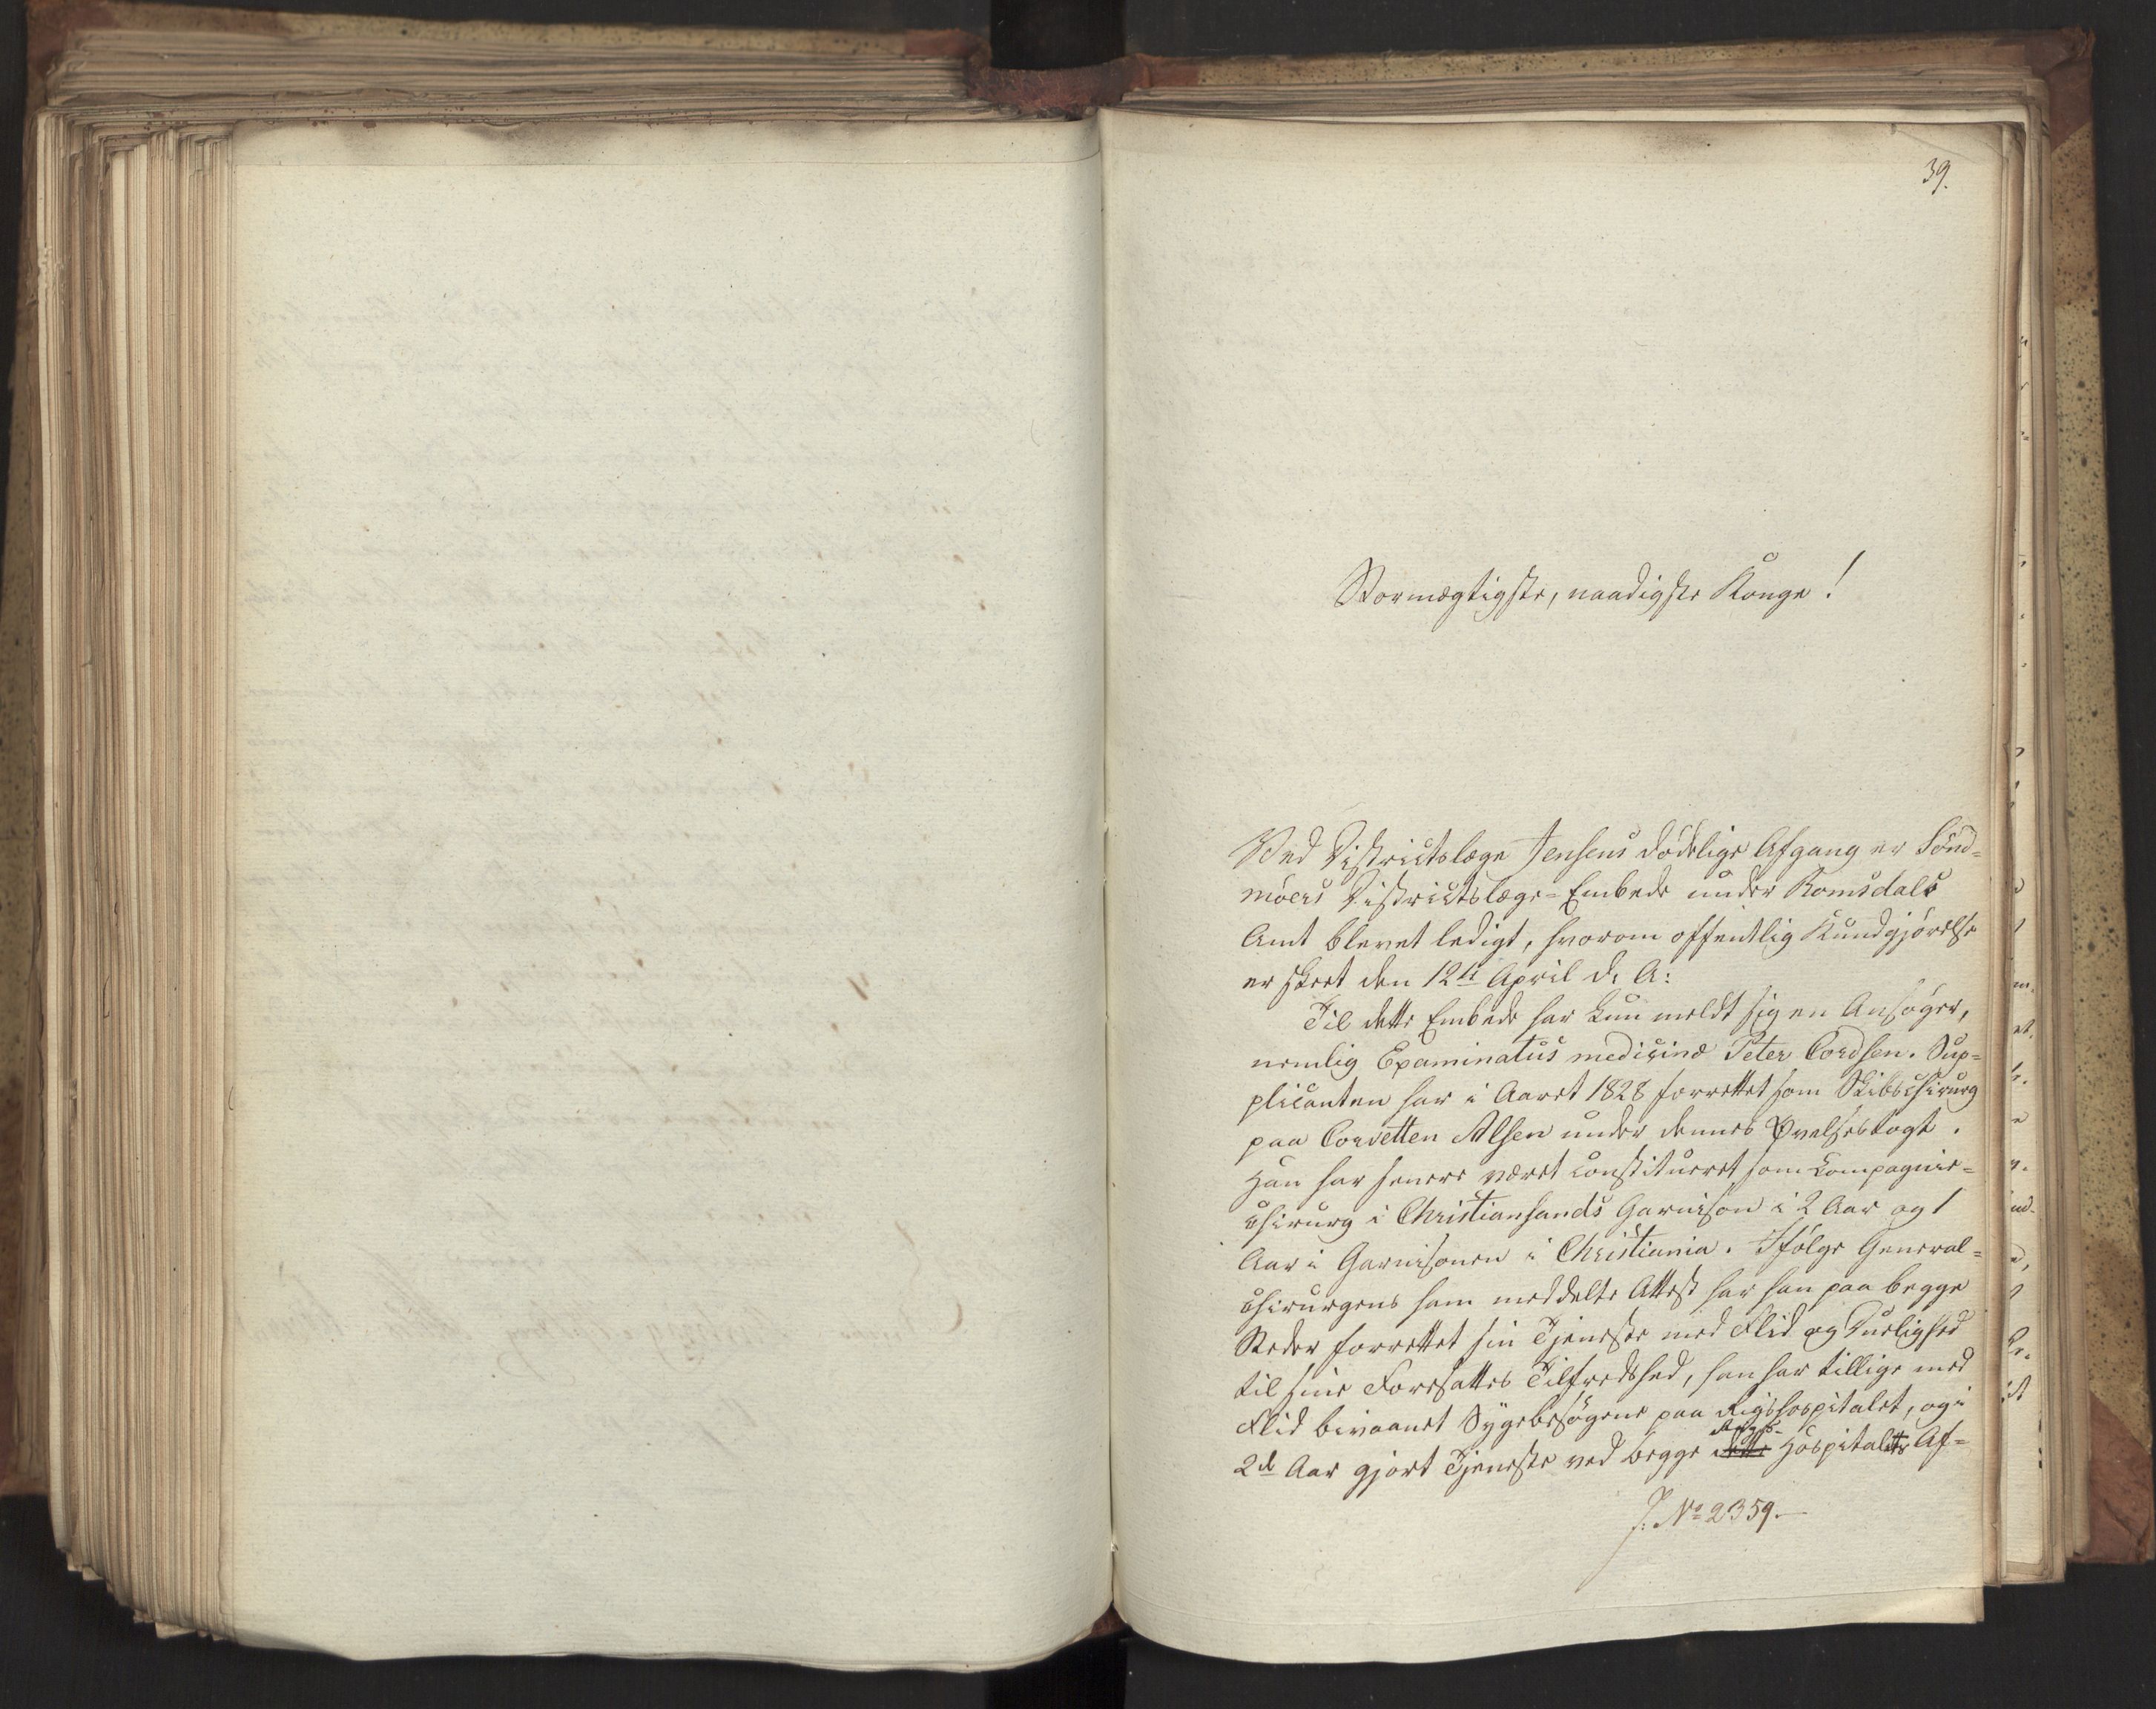 39.
Stormægtigste, naadigste Konge!
Ved Districtslæge Jensens dødelige Afgang er Sönd=
möers Districtslæge-Embede under Romsdals
Amt blevet ledigt, hvorom offentlig Kundgjørelse
er skeet den 12te April d. A:
Til dette Embede har kun meldt sig en Ansøger,
nemlig Examinatus medicinæ Peter Cordsen. Sup=
plicanten har i Aaret 1828 forrettet som Skibschirurg
paa Corvetten Alsen under dennes Øvelsestogt.
Han har senere været constitueret som Compagnie=
chirurg i Christiansands Garnison i 2 Aar og 1
Aar i Garnisonen i Christiania. Ifølge General=
chirurgens ham meddelte Attest har han paa begge
Steder forrettet sin Tjeneste med Flid og Duelighed
til sine Foresattes Tilfredshed, han har tillige med
Flid bivaanet Sygebesøgene paa Rigshospitalet, og i
2de Aar gjort Tjeneste ved begge dette Hospitalets Af=
J: No 2359.